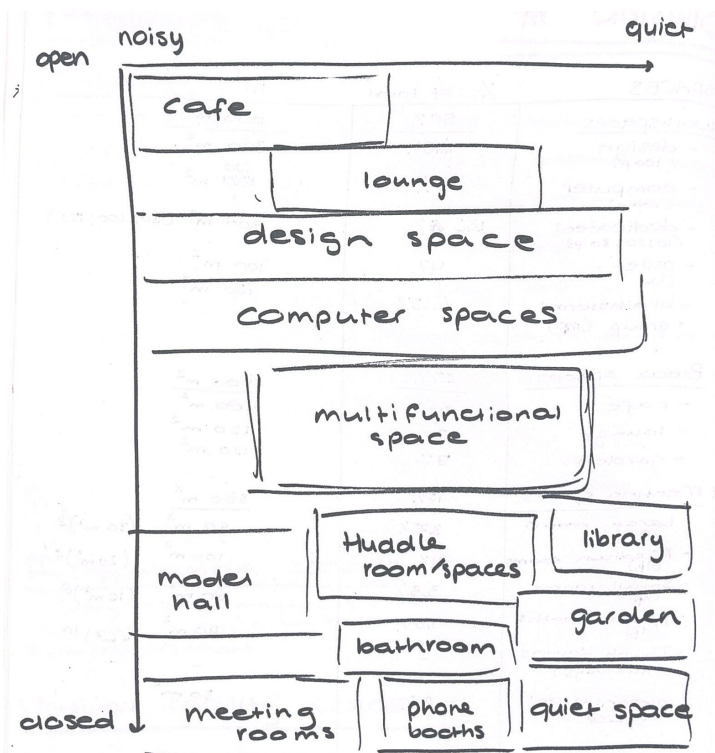 noisy quiet
open
cafe
lounge
design space
computer spaces
multifunctional
space
Huddle
room/spaces
library
model
hall
garden
bathroom
closed
meeting
rooms
phone
booths
quiet space